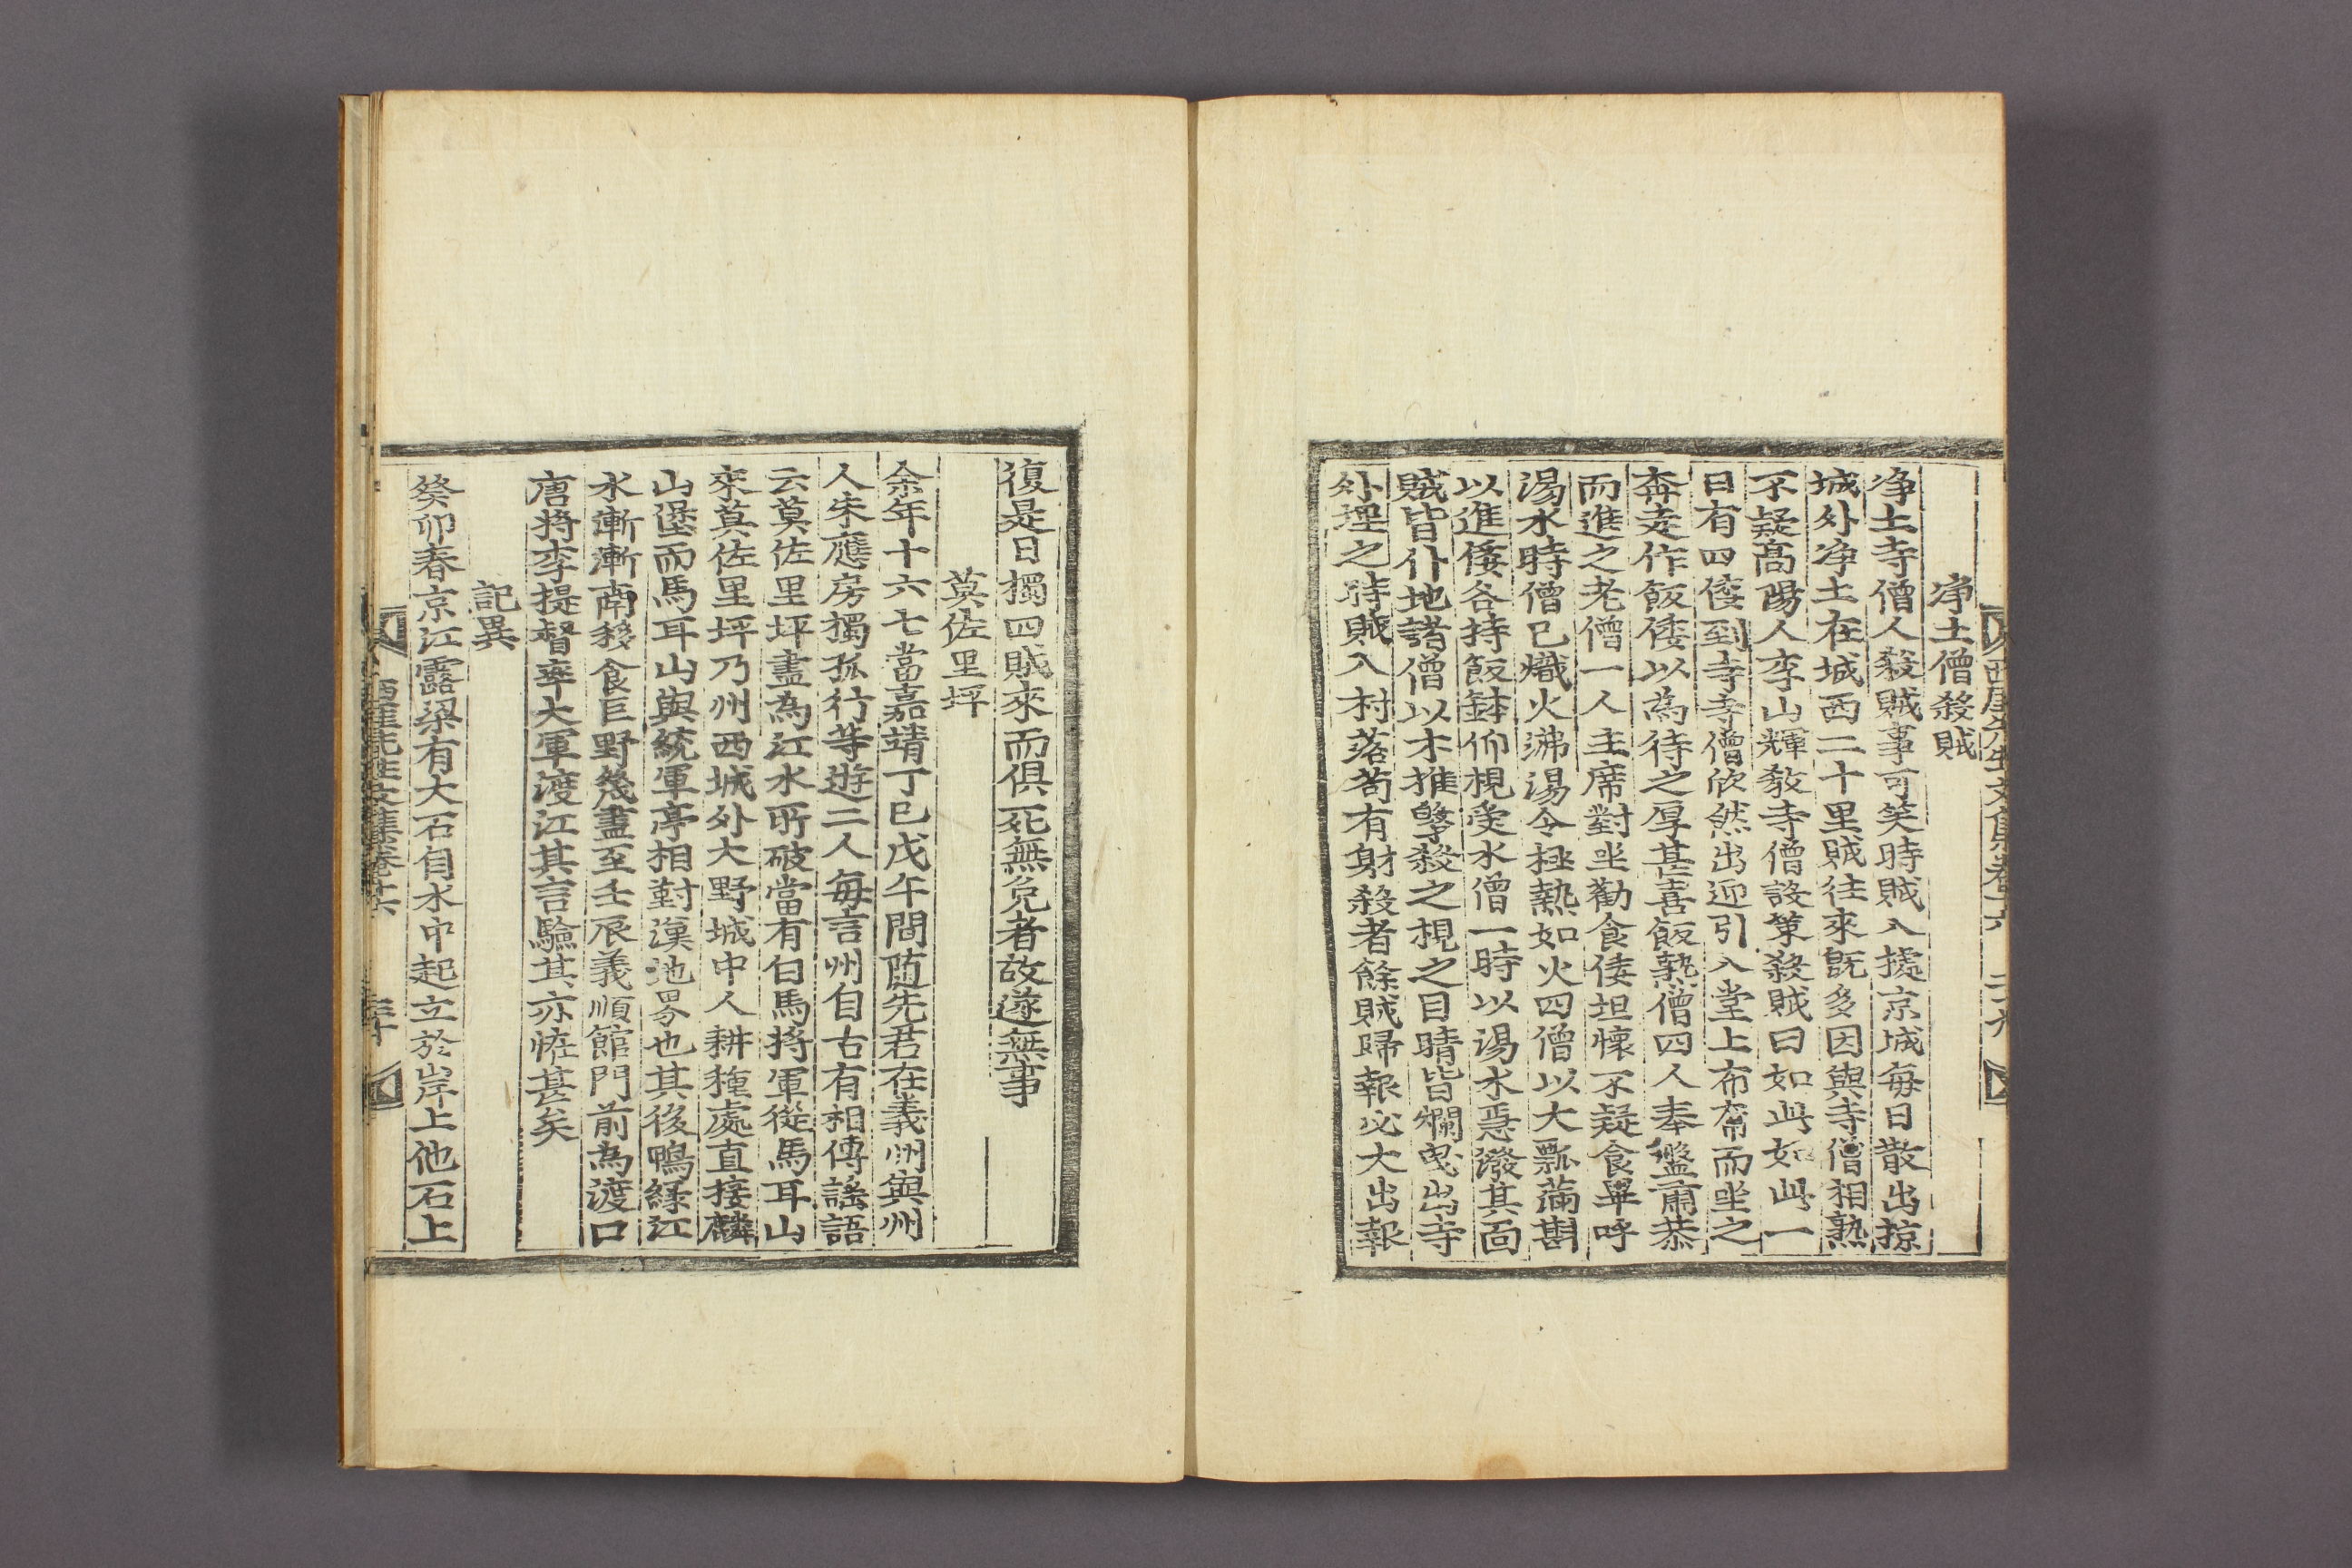 西厓先生文集卷十六 二十九
淨土僧殺賊
淨土寺僧人殺賊事可笑時賊入據京城每日散出掠
城外淨土在城西二十里賊往來旣多因與寺僧相熟
不疑高陽人李山輝敎寺僧設策殺賊曰如此如此一
日有四倭到寺寺僧欣然出迎引入堂上布席而坐之
奔走作飯倭以爲待之厚甚喜飯熟僧四人奉盤甫恭
而進之老僧一人主席對坐勸食倭坦懷不疑食畢呼
湯水時僧已熾火沸湯令極熱如火四僧以大瓢滿斟
以進倭各持飯鉢仰視受水僧一時以湯水急潑其面
賊皆仆地諸僧以木推擊殺之視之目睛皆爛曳出寺
外埋之時賊入村落苟有射殺者餘賊歸報必大出報
復是日獨四賊來而俱死無免者故遂無事
莫佐里坪
余年十六七當嘉靖丁巳戊午間隨先君在義州與州
人朱應房獨孤行等遊二人每言州自古有相傳謠語
云莫佐里坪盡爲江水所破當有白馬將軍從馬耳山
來莫佐里坪乃州西城外大野城中人耕種處直接麟
山堡而馬耳山與統軍亭相對漢池界也其後鴨綠江
水漸漸南移食巨野幾盡至壬辰義順館門前爲渡口
唐將李提督率大軍渡江其言驗其亦怪甚矣
記異
癸卯春京江露梁有大石自水中起立於岸上他石上
西厓先生文集卷十六 三十